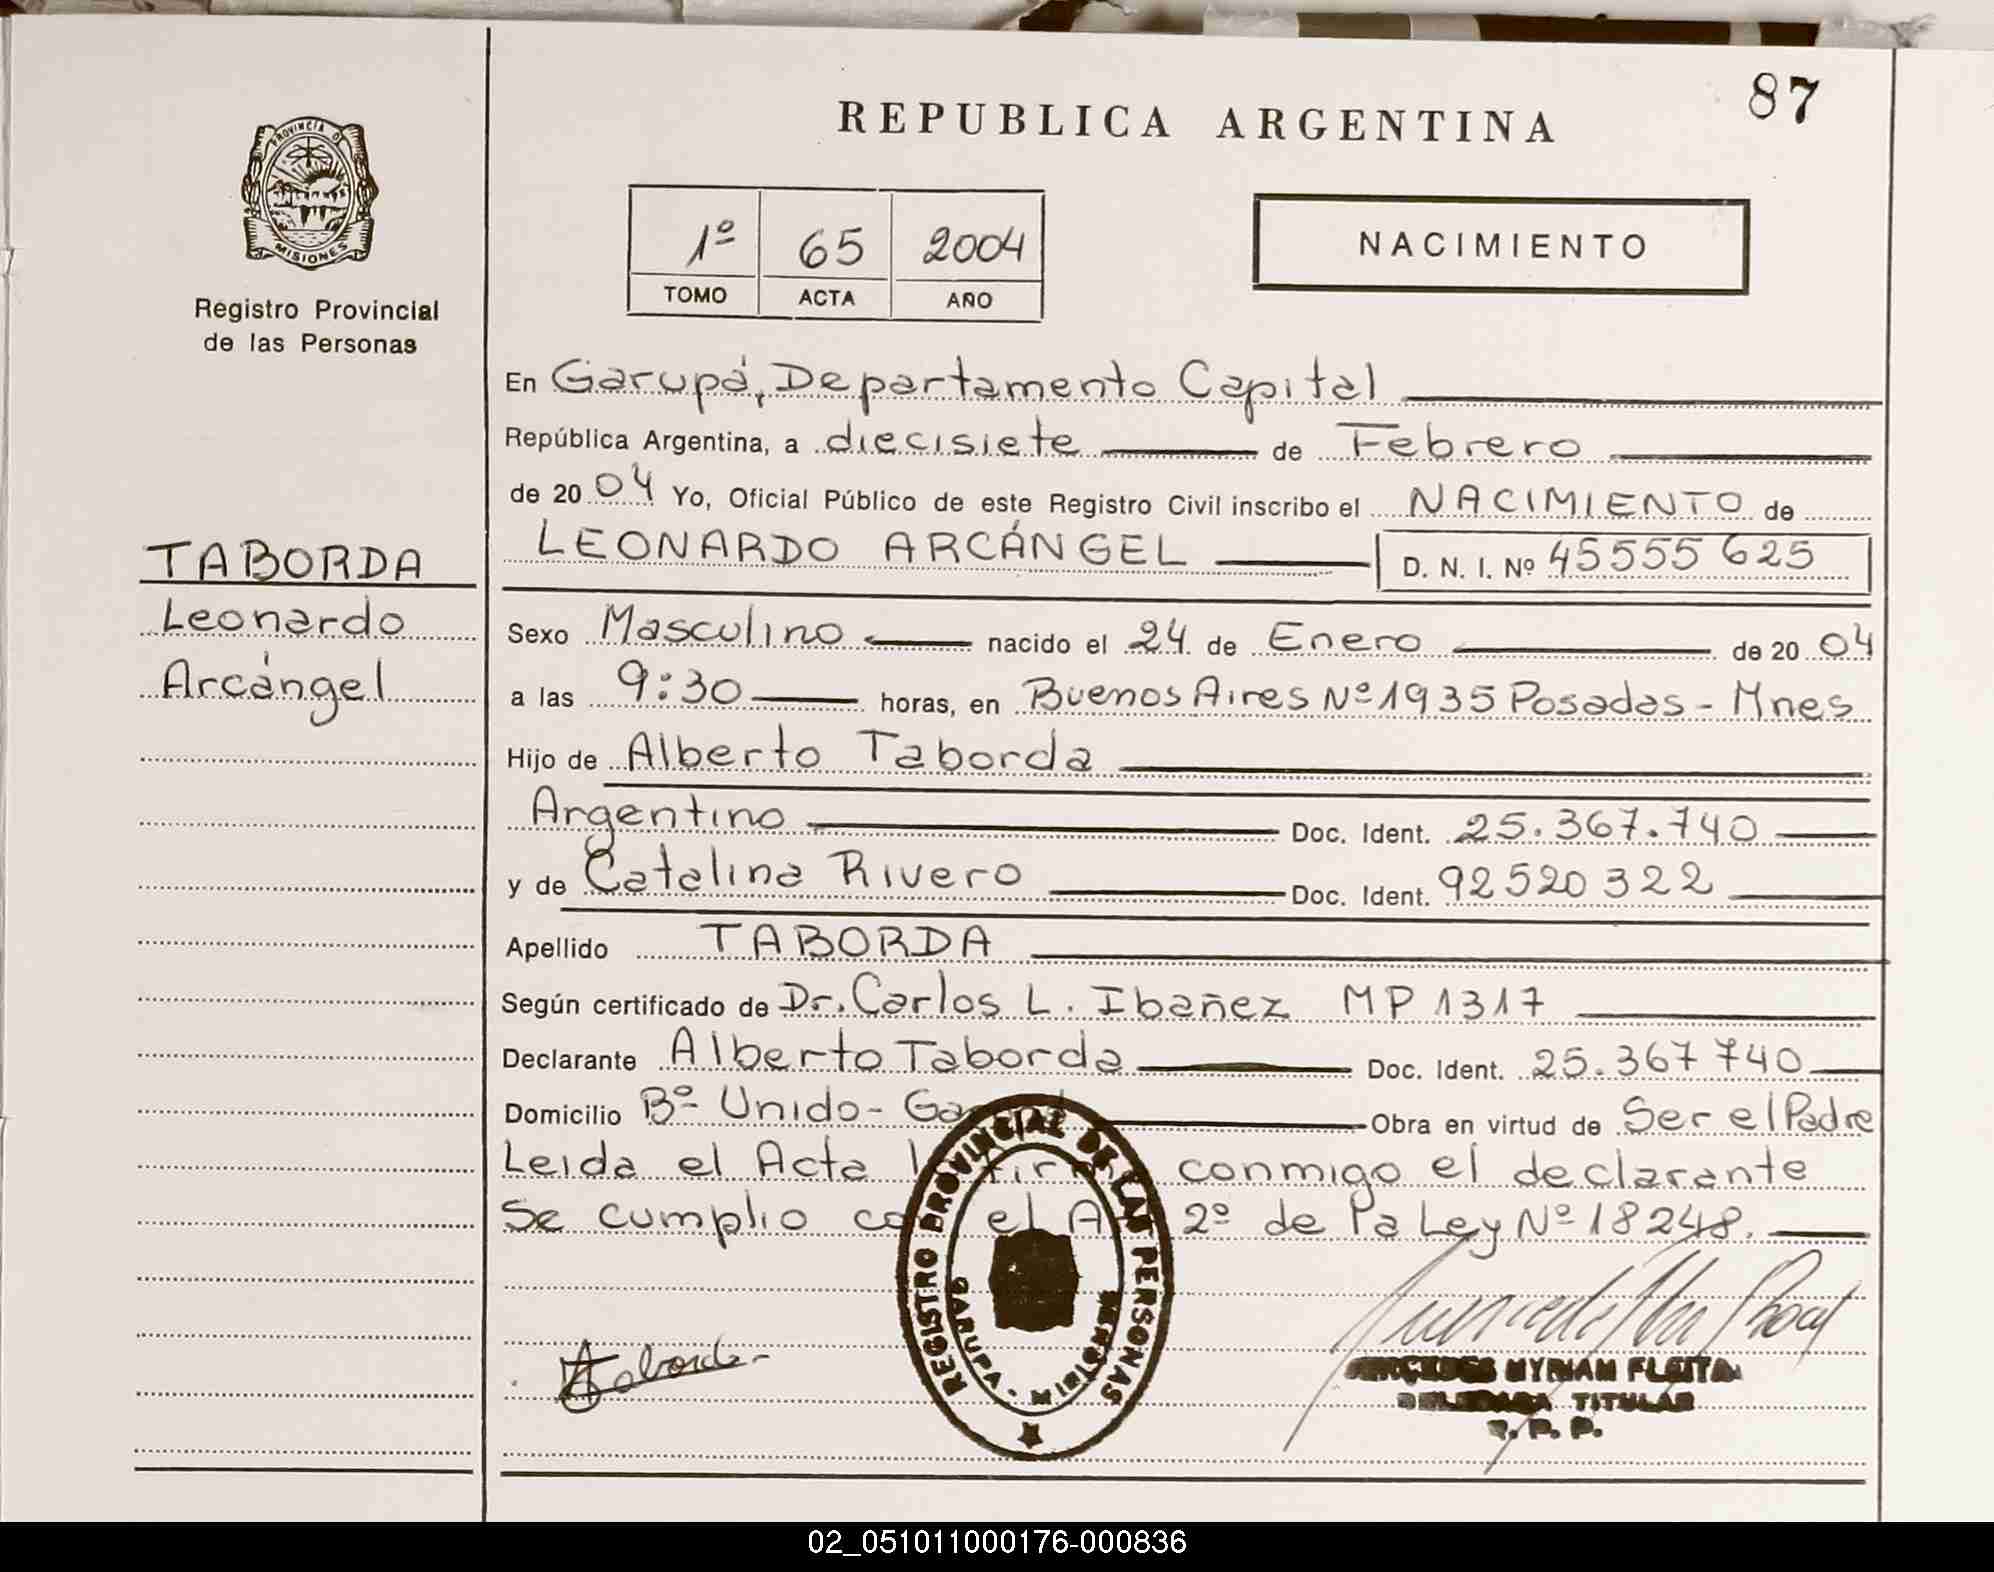 87
REPUBLICA ARGENTINA
PROVINCIA DE
MISIONES
Registro Provincial
de las Personas
1º 65 2004
TOMO ACTA AÑO
NACIMIENTO
En Garupá, Departamento Capital
República Argentina, a diecisiete de Febrero
de 2004 Yo, Oficial Público de este Registro Civil inscribo el NACIMIENTO de
LEONARDO ARCÁNGEL D. N. I. Nº 45555625
TABORDA
Leonardo
Arcángel
Sexo Masculino nacido el 24 de Enero de 2004
a las 9:30 horas, en Buenos Aires Nº 1935 Posadas - Mnes
Hijo de Alberto Taborda
Argentino Doc. Ident. 25.367.740
y de Catalina Rivero Doc. Ident. 92520322
Apellido TABORDA
Según certificado de Dr. Carlos L. Ibañez MP 1317
Declarante Alberto Taborda Doc. Ident. 25.367740
Domicilio Bº Unido - Obra en virtud de Ser el Padre
Leida el Acta conmigo el declarante
Se cumplio el 2º de la Ley Nº 18248.
REGISTRO PROVINCIAL DE LAS PERSONAS
GARUPA -
Taborda
MERCEDES MYRIAM FLEITA
DELEGADA TITULAR
R. P. P.
02_051011000176-000836